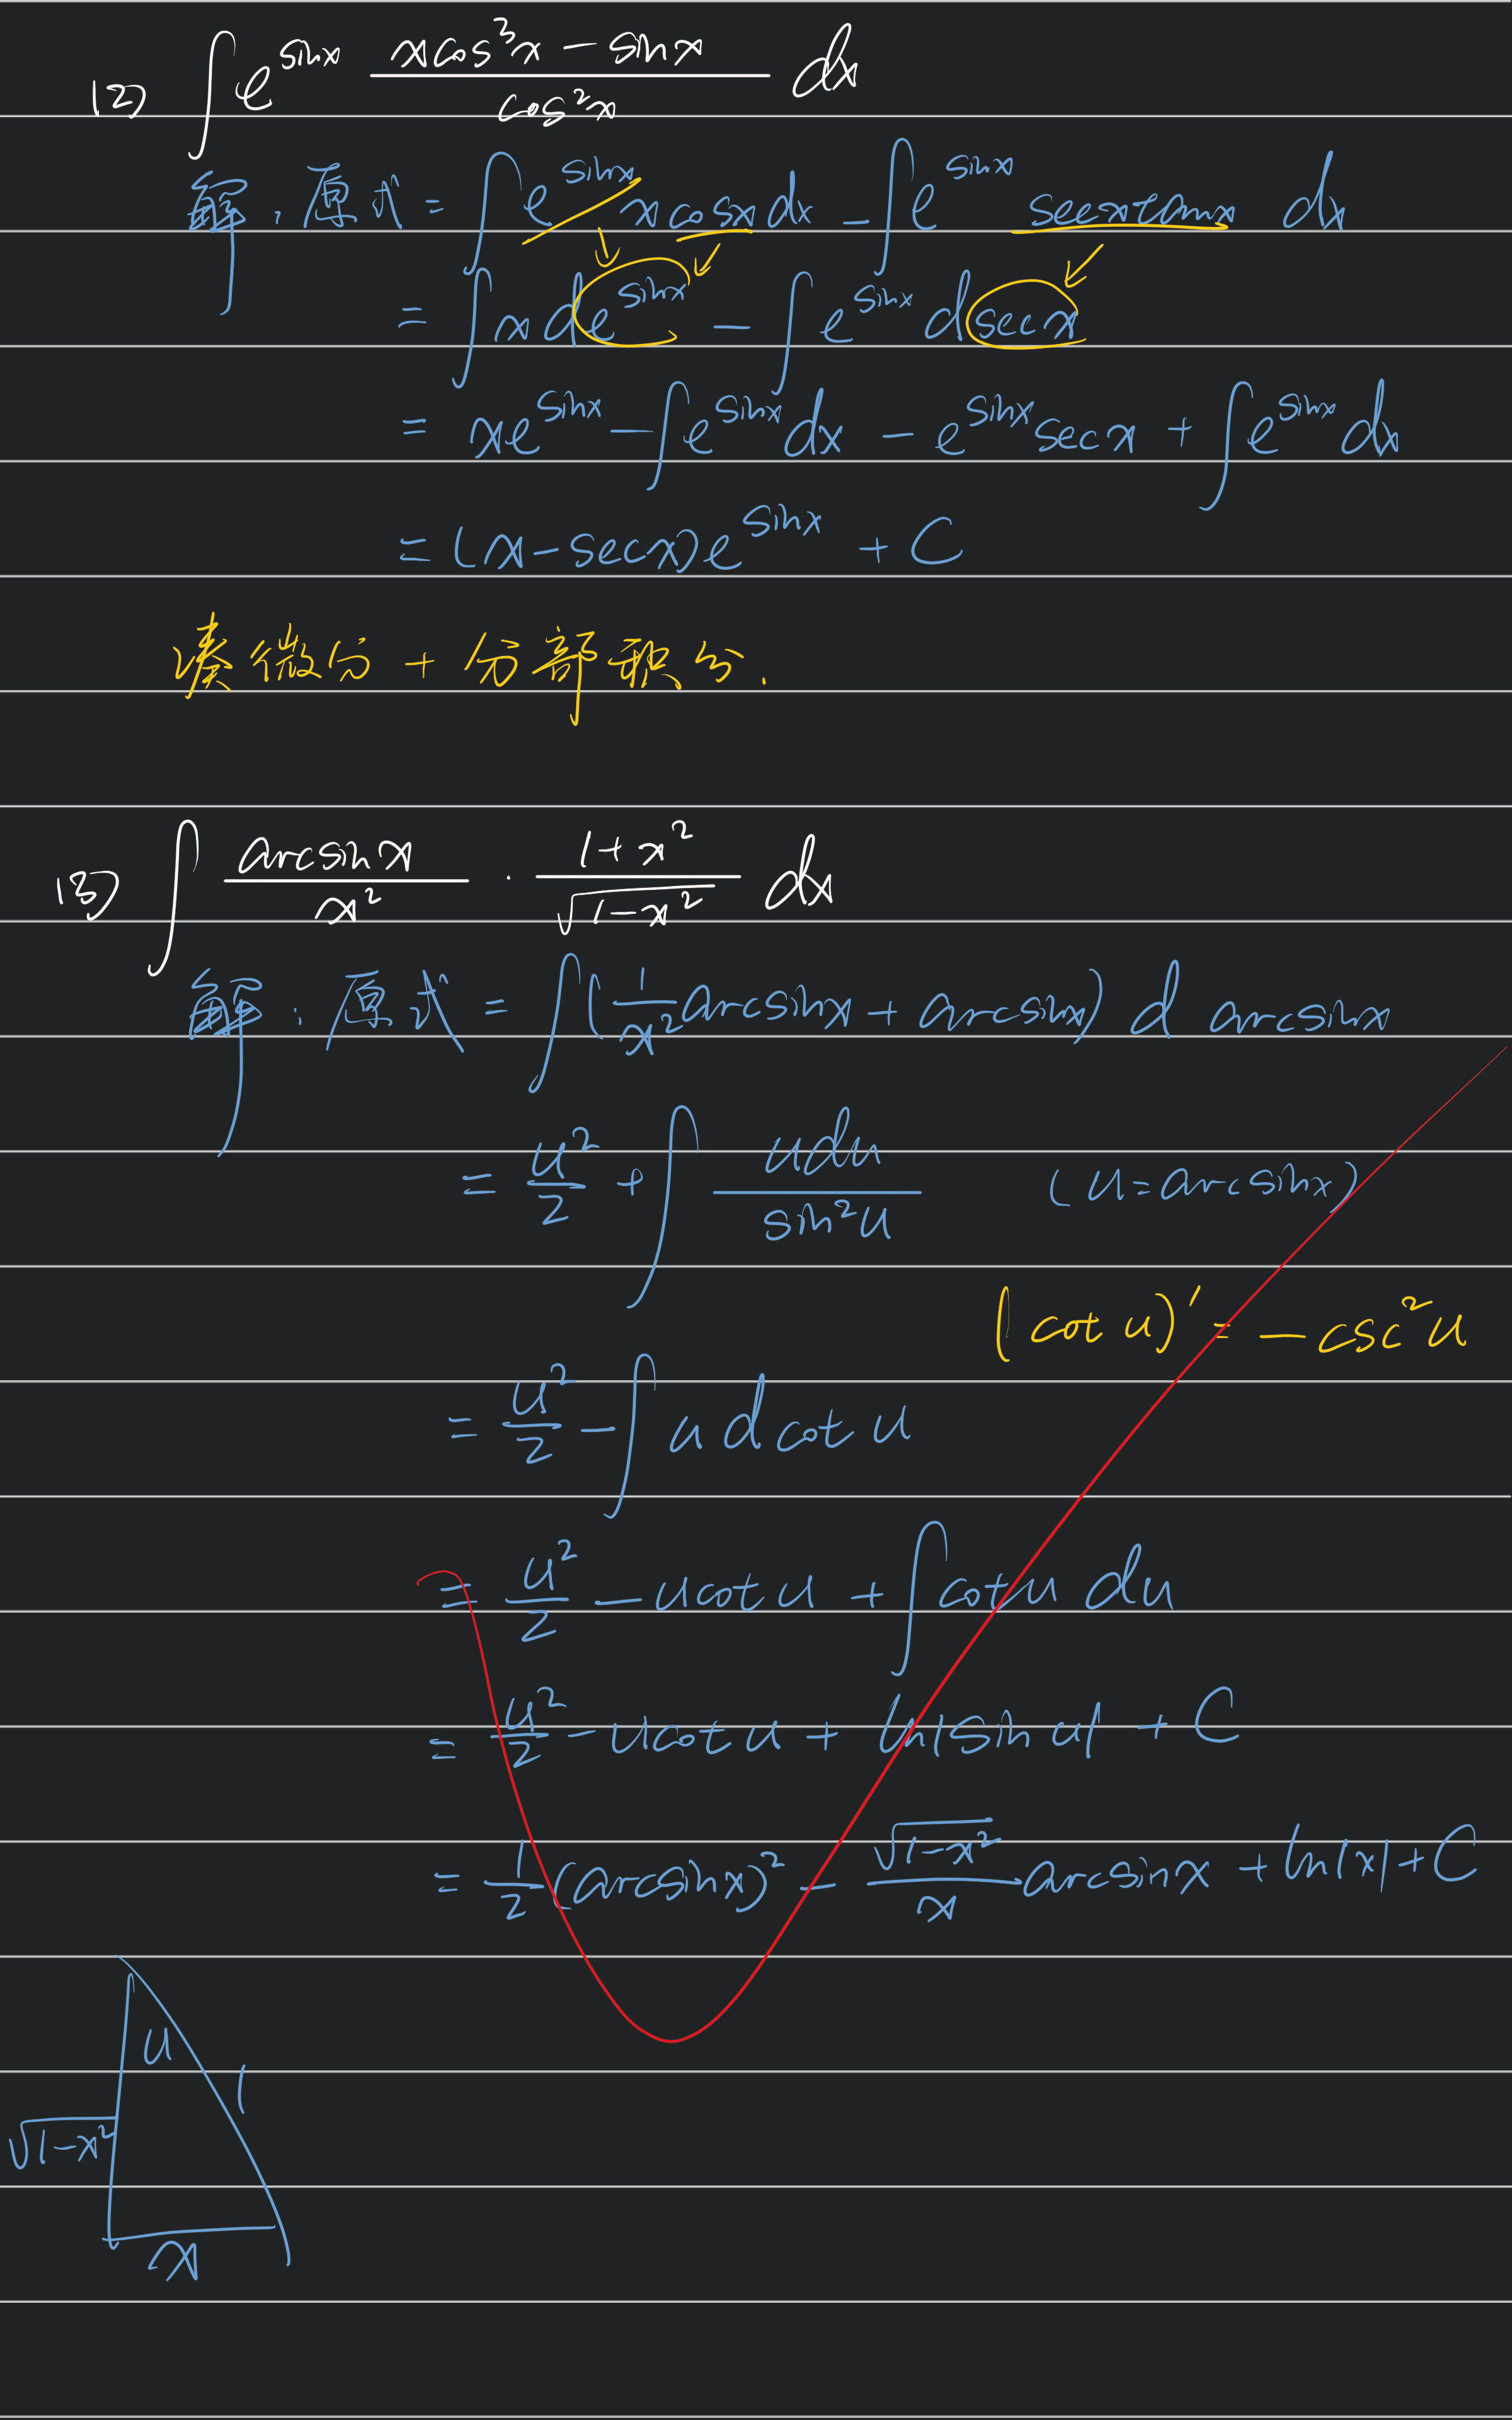 (2) ∫ e^{sinx} \frac{xcos³x - sinx}{cos²x} dx
解：原式 = ∫ e^{sinx} x cosx dx - ∫ e^{sinx} secxtanx dx
= ∫ x d e^{sinx} - ∫ e^{sinx} d secx
= xe^{sinx} - ∫ e^{sinx} dx - e^{sinx} secx + ∫ e^{sinx} dx
= (x - secx) e^{sinx} + C
凑微分 + 分部积分.
(3) ∫ \frac{arcsinx}{x²} · \frac{1+x²}{\sqrt{1-x²}} dx
解：原式 = ∫ (\frac{1}{x²} arcsinx + arcsinx) d arcsinx
= \frac{u²}{2} + ∫ \frac{udu}{sin²u} (u = arcsinx)
(cot u)' = -csc²u
= \frac{u²}{2} - ∫ u d cot u
= \frac{u²}{2} - ucot u + ∫ cot u du
= \frac{u²}{2} - ucot u + ln|sin u| + C
= \frac{1}{2} (arcsinx)² - \frac{\sqrt{1-x²}}{x} arcsinx + ln|x| + C
u
1
\sqrt{1-x²}
x